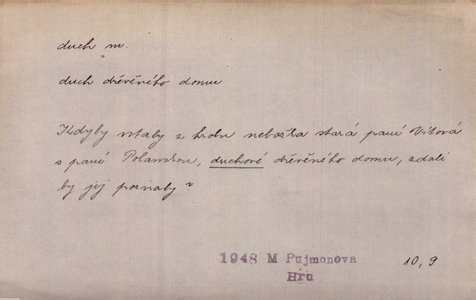 duch m.
duch dřevěného domu
Kdyby vstaly z hrobu nebožka stará paní Vitová
s paní Polanskou, duchové dřevěného domu, zdali
by jej poznaly?
1948 M Pujmanova
Hru
10, 9